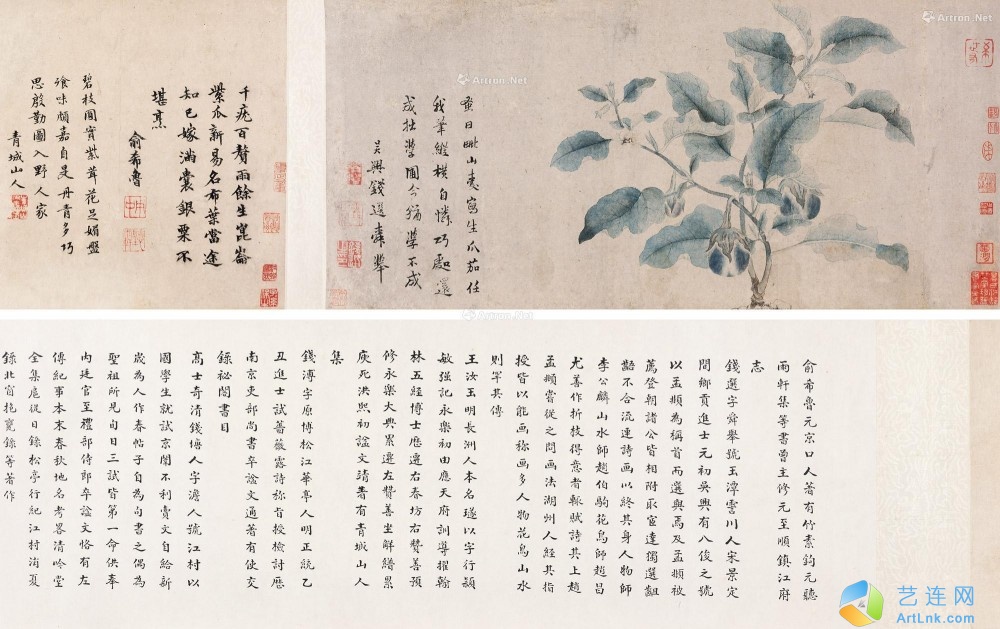 Artron.Net
Artron.Net
Artron.Net
昔日毗山夷寫生瓜茄任
我筆縱橫自憐巧處還
成拙學圃今猶學不成
吳興錢選舜舉
千疣百贅雨餘生崑崙
紫瓜新易名布葉當途
知已嫁滿囊銀粟不
堪烹
俞希魯
碧枝圓實紫茸花足媚盤
飱味頗嘉自是丹青多巧
思殷勤圖入野人家
青城山人
俞希魯元京口人著有竹素鈎元聽
雨軒集等書曾主修元至順鎮江府
志
錢選字舜舉號玉潭霅川人宋景定
間鄉貢進士元初吳興有八俊之號
以孟頫為稱首而選與焉及孟頫被
薦登朝諸公皆相附取宦達獨選齟
齬不合流連詩画以終其身人物師
李公麟山水師趙伯駒花鳥師趙昌
尤善作折枝得意者輒賦詩其上趙
孟頫嘗從之問画法湖州人經其指
授皆以能画称画多人物花鳥山水
則罕其傳
王汝玉明長洲人本名璲以字行穎
敏强記永樂初由應天府訓導擢翰
林五經博士應遷右春坊右贊善預
修永樂大典累遷左贊善坐解縉累
庾死洪熙初謚文靖著有青城山人
集
錢溥字原博松江華亭人明正統乙
丑進士試薔薇露詩称旨授檢討歷
南京吏部尚書卒謚文通著有使交
錄秘閣書目
高士奇清錢塘人字澹人號江村以
國學生就試京闈不利賣文自給新
歲為人作春帖子自為句書之偶為
聖祖所見旬日三試皆第一命供奉
内廷官至禮部侍郎卒謚文恪有左
傳紀事本末春秋地名考畧清吟堂
全集扈從日錄松亭行紀江村消夏
錄北窗抱甕錄等著作
艺连网
ArtLnk.com